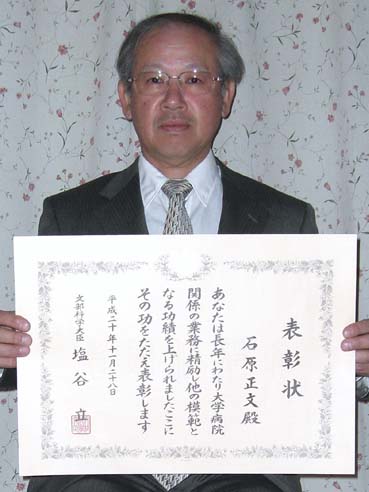 表彰状
石原正文殿
あなたは長年にわたり大学病院
関係の業務に精励し他の模範と
なる功績を上げられましたここに
その功をたたえ表彰します
平成二十年十一月二十八日
文部科学大臣 塩谷 立